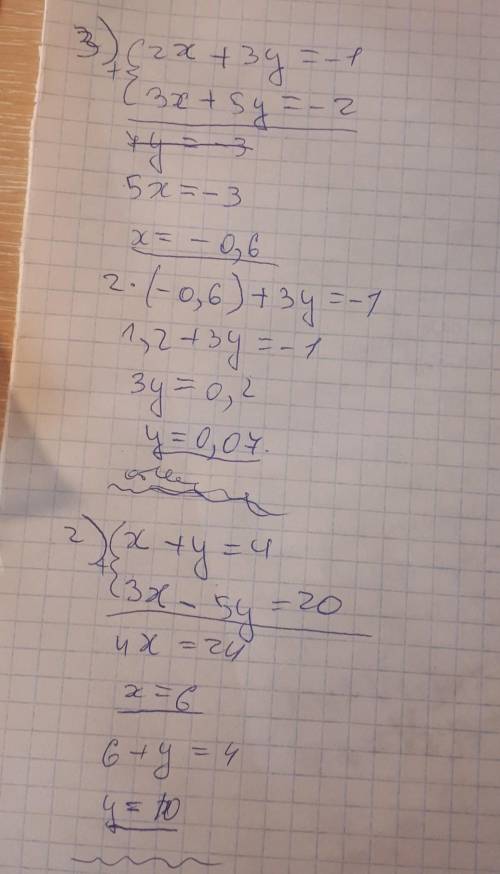 3) { 2x + 3y = -1
+ { 3x + 5y = -2
7y = -3
5x = -3
x = -0,6
2·(-0,6) + 3y = -1
1,2 + 3y = -1
3y = 0,2
y = 0,07.
2) { x + y = 4
+ { 3x - 5y = 20
4x = 24
x = 6
6 + y = 4
y = 10